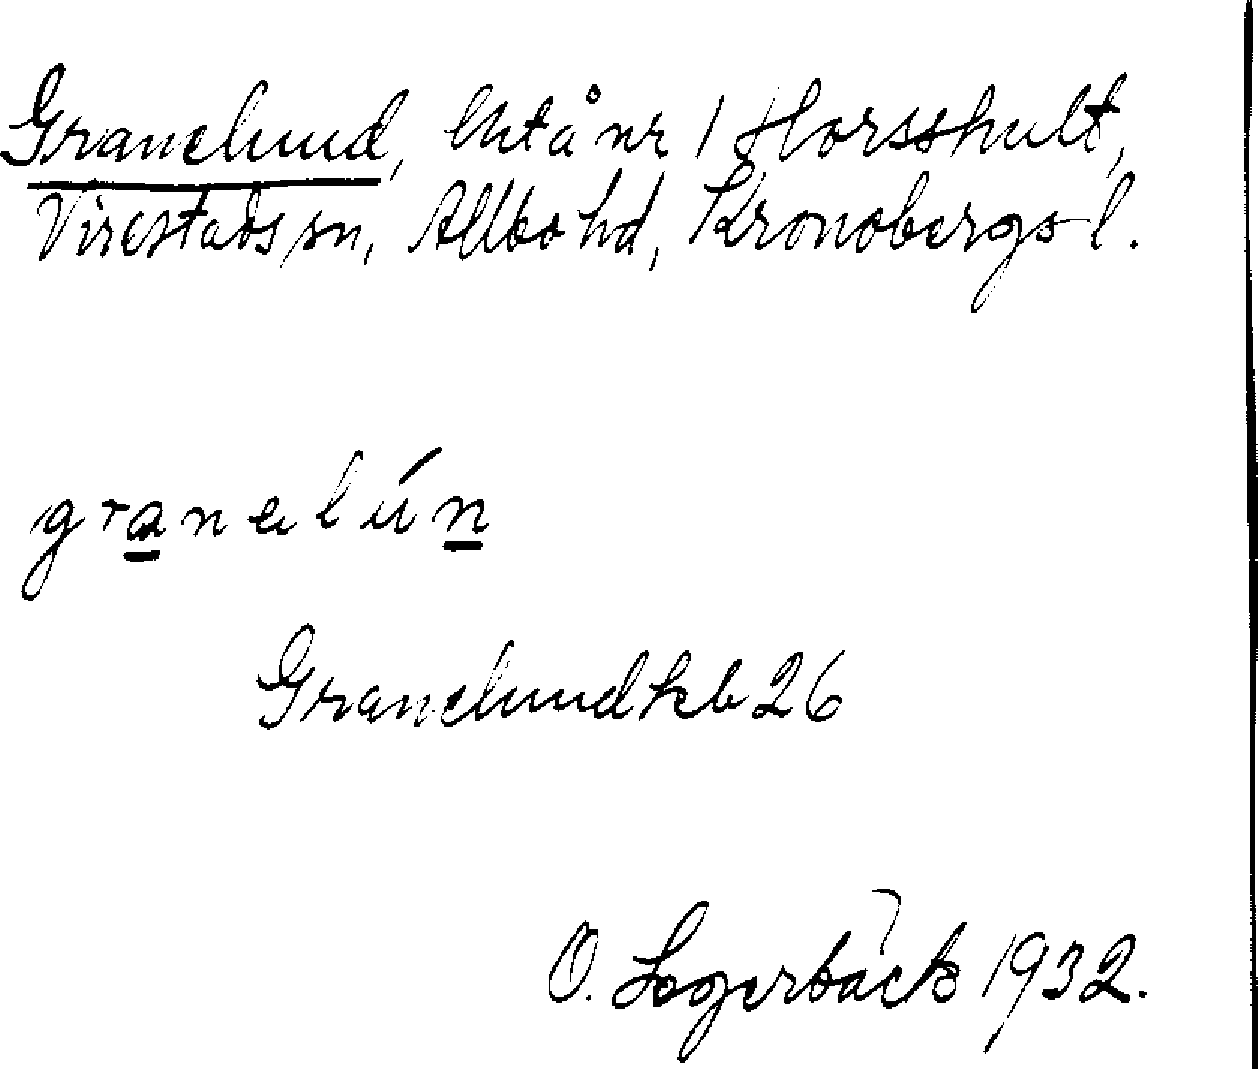 Granelund, Utå nr 1 Horsshult,
Virestads sn, Allbo hd, Kronobergs l.
granelún
Granelund kb 26
O. Lagerbäck 1932.